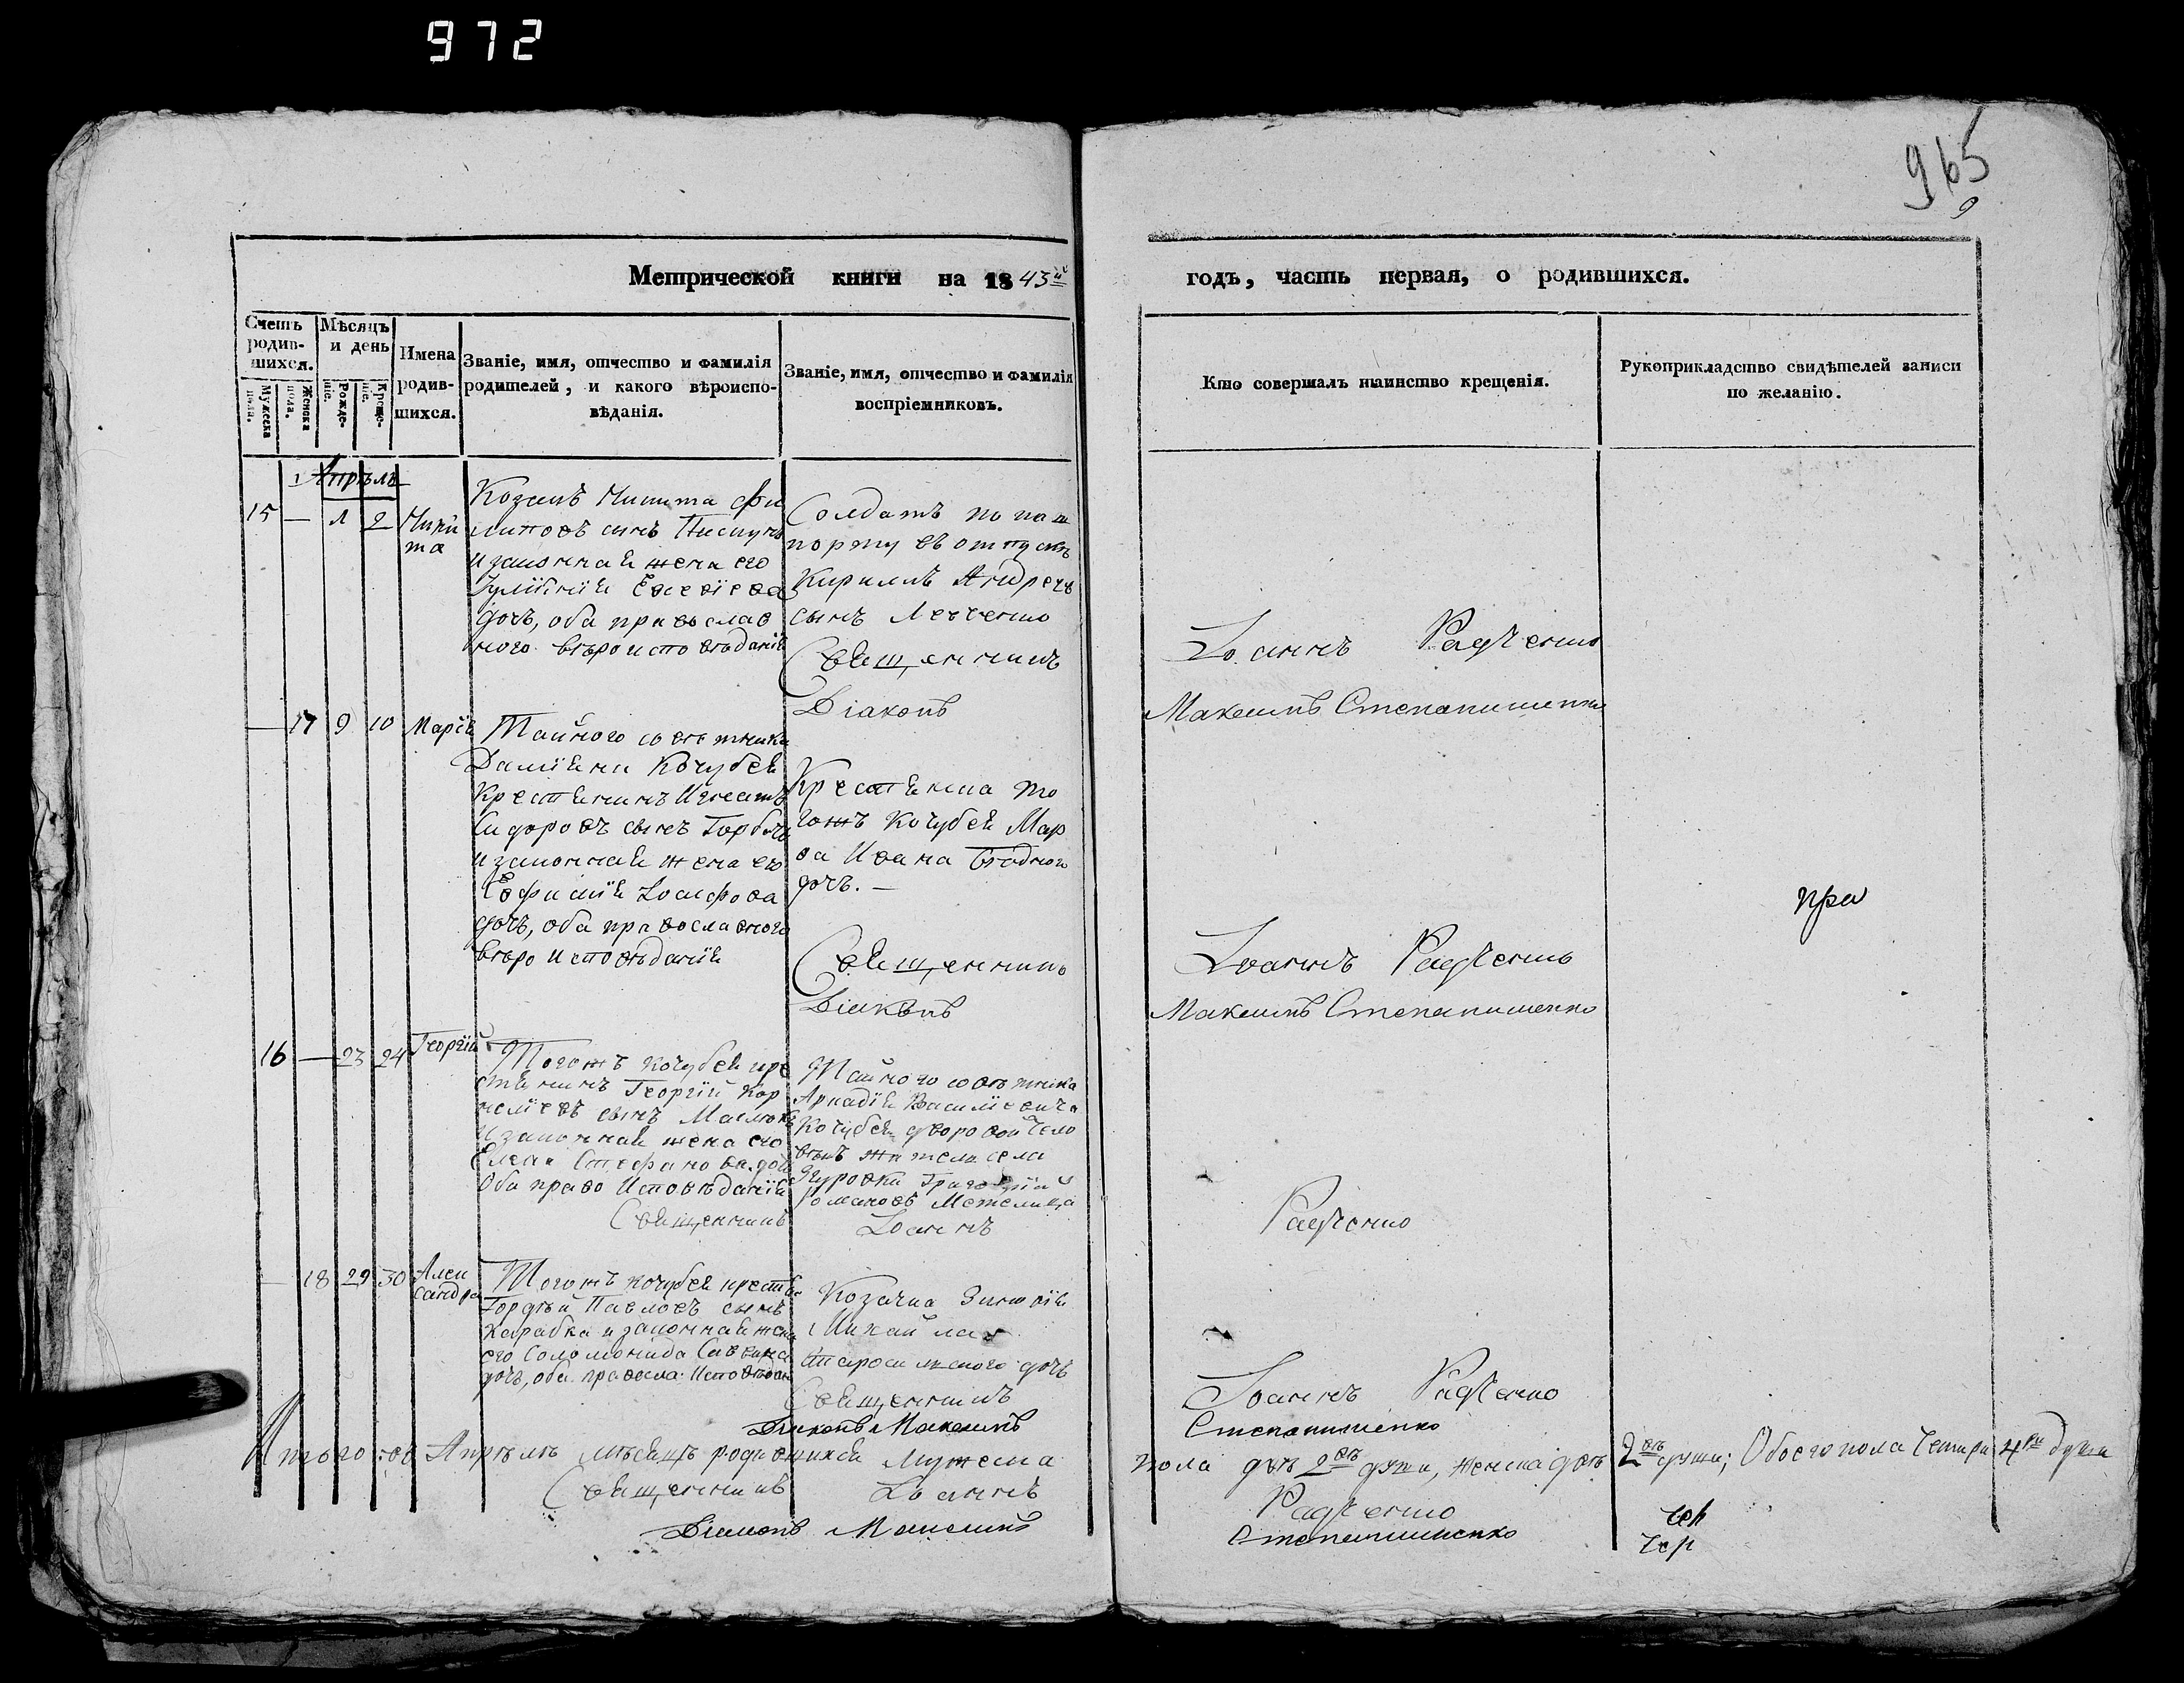 972
965
9
Метрической книги на 1843й годъ, часть первая, о родившихся.
Счетъ родив-шихся.
Мужеска пола.
Женска пола.
Мѣсяцъ и день
Рожде-ніе.
Креще-ніе.
Имена родив-шихся.
Званіе, имя, отчество и фамилія родителей, и какого вѣроиспо-вѣданія.
Званіе, имя, отчество и фамилія воспріемниковъ.
Кто совершалъ таинство крещенія.
Рукоприкладство свидѣтелей записи по желанію.
Апрѣль
15 — 1 2 Ники
та
Козакъ Никита Фи
липовъ сынъ
и законная жена его
дочь, оба православ
ного вѣроисповѣданія
Солдатъ по паш
порту въ отпускъ
Кирилъ Андреевъ
сынъ Левченко
Священникъ
Діаконъ
Іоаннъ Радченко
Максимъ Степанишенко
— 17 9 10 Марія
Тайного совѣтника
Даміяна Кочубея
Крестянинъ Игнатъ
Сидоровъ сынъ Горбачъ
и законная жена его
Евфимія Іосифова
дочь, оба православного
вѣро исповѣданія
Крестянка то
гожъ Кочубея Мар
ва Ивана Бѣдного
дочь. —
Священникъ
Діаконъ
Іоаннъ Радченко
Максимъ Степанишенко
пра
16 — 23 24 Георгій
Тогожъ Кочубея кре
стянинъ Георгій Кор
неліевъ сынъ Маслюкъ
и законная жена его
Елена Стефанова дочь
Оба право Исповѣданія
Священникъ
Тайного совѣтника
Аркадія Василіевича
Кочубея дворовой чело
вѣкъ житель села
Згуровки Григорій
Романовъ Метелица
Іоаннъ
Радченко
— 18 29 30 Алек
сандра
Тогожъ Кочубея крестья
Гордѣй Павловъ сынъ
Карабка и законная жена
его Соломонида Саввина
дочь, оба правосла. Исповѣдан
Козачка Зиновія
Михайла
Старосилского дочь
Священникъ
Діаконъ Максимъ
Іоаннъ Радченко
Степанишенко
Итого въ Апрѣлѣ мѣсяцѣ родившихся Мужеска пола двѣ 2вѣ души, женска двѣ 2вѣ души; Обоего пола четыри 4ри души
Священникъ Іоаннъ Радченко
Діаконъ Максимъ Степанишенко
чер